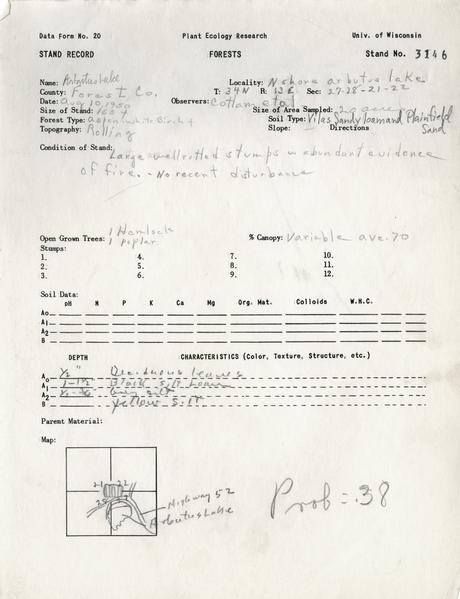 Data Form No. 20 Plant Ecology Research Univ. of Wisconsin
STAND RECORD FORESTS Stand No. 3146
Name: Arbutus Lake Locality: N shore arbutus lake
County: Forest Co. T: 34N R: 13E Sec: 27-28-21-22
Date: Aug 10, 1950 Observers: Cottam et al
Size of Stand: Size of Area Sampled: 20 acres
Forest Type: aspen white Birch Soil Type: Vilas Sandy loam and Plainfield Sand
Topography: Rolling Slope: Directions
Condition of Stand: Large well rotted stumps w abundant evidence
of fire. - No recent disturbance
Open Grown Trees: 1 Hemlock
1 poplar % Canopy: Variable ave. 70
Stumps:
1. 4. 7. 10.
2. 5. 8. 11.
3. 6. 9. 12.
Soil Data:
pH N P K Ca Mg Org. Mat. Colloids W.H.C.
Ao
A1
A2
B
DEPTH CHARACTERISTICS (Color, Texture, Structure, etc.)
Ao 1/2" Deciduous leaves
A1 1-1 1/2 Black silt loam
A2 Grey silt
B Yellow silt
Parent Material:
Map:
21 22
28
Highway 52
Arbutus Lake
Prob = .38